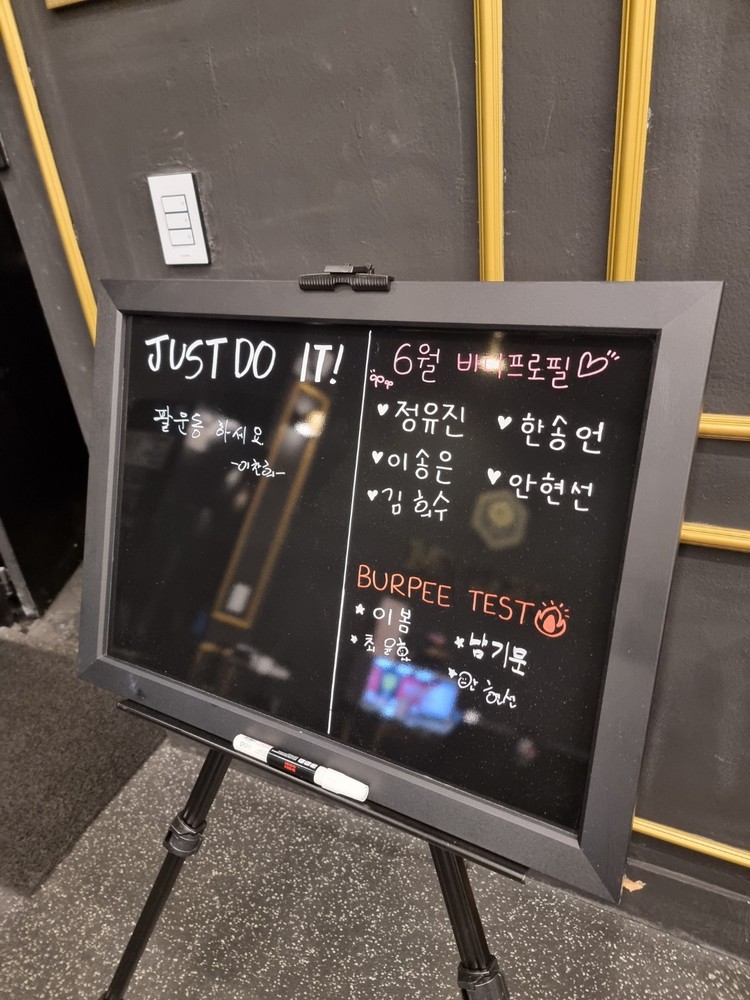 JUST DO IT!
팔운동 하세요
-이찬희-
6월 바디프로필
정유진
한송언
이송은
안현선
김희수
BURPEE TEST
이봄
최윤호
밤기문
안현선